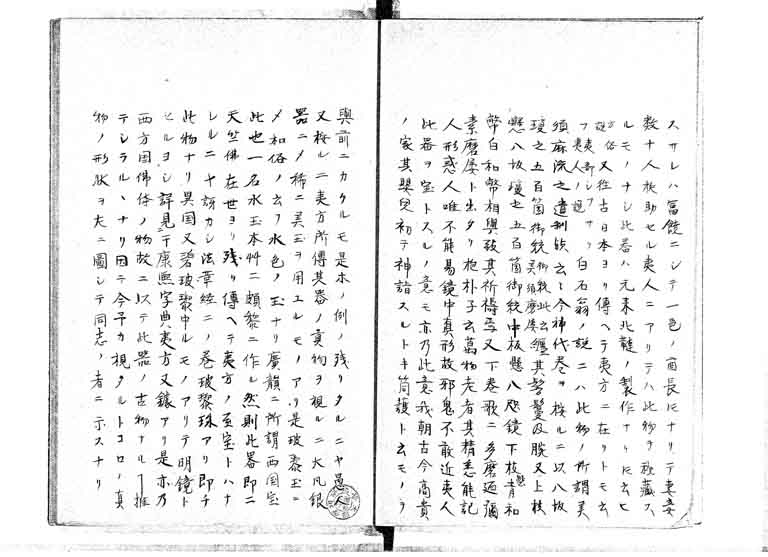 スサレハ富饒ニシテ一色ノ酋長ニナリテ妻妾
数十人扶助セル夷人ニアリテハ此物ヲ秘蔵ス
ルモノナシ此器ハ元来北韃ノ製作ナリト云ヒ
又往古日本ヨリ傳ヘテ夷方ニ在リトモ云
フ 白石翁ノ説ニハ此物ノ所謂美
須麻流之遺制欤云々今神代巻ヲ按ルニ以八坂
瓊之五百箇御統 纏其髻鬘及腕又上枝
懸八坂瓊之五百箇御統中枝懸八咫鏡下枝懸青和
幣白和幣相與致其祈禱焉又下巻歌ニ多磨迺弥
素磨屢ト出タリ抱朴子云萬物老者其精悉能記
人形惑人唯不能易鏡中真形故邪鬼不敢近夷人
此器ヲ宝トスルノ意モ亦乃此意我朝古今高貴
ノ家其嬰兒初テ神詣スルトキ筒護ト云モノヲ
輿前ニカクルモ是ホノ例ノ残リタルニヤ愚人
又按ルニ夷方所傳其器ノ真物ヲ視ルニ大凡銀
器ニメ稀ニ美玉ヲ用ユルモノアリ是玻瓈玉ニ
メ和俗ノ云フ水色ノ玉ナリ廣韻ニ所謂西国宝
此也一名水玉本艸ニ頗黎ニ作ル然則此器即ニ
天竺佛在世ヨリ残リ傳ヘテ夷方ノ至宝トハナ
レルニヤ該カシ法華経ニノ巻玻瓈珠アリ即チ
此物ナリ異国又碧玻瓈中ルモノアリテ明鏡ト
セルヨシ詳見于康熙字典夷方又鏡アリ是亦乃
西方因佛條ノ物故ニ以テ此器ノ古物ナルー推
テシラルヽナリ因ニ今予カ視タルトコロノ真
物ノ形状ヲ左ニ圖シテ同志ノ者ニ示スナリ